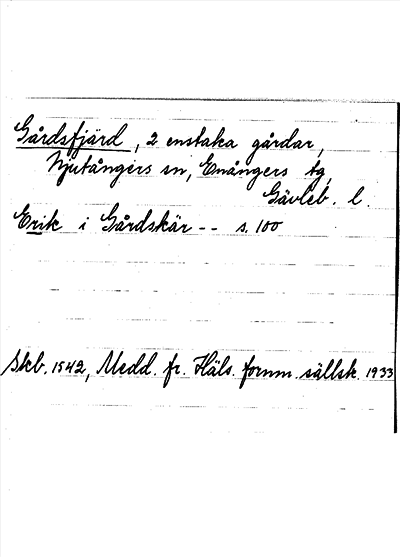 Gårdsfjärd, 2 enstaka gårdar,
Njutångers sn, Enångers tg,
Gävleb. l.
Erik i Gårdskär -- s. 100
Skb. 1542, Medd. fr. Häls. fornm. sällsk. 1933